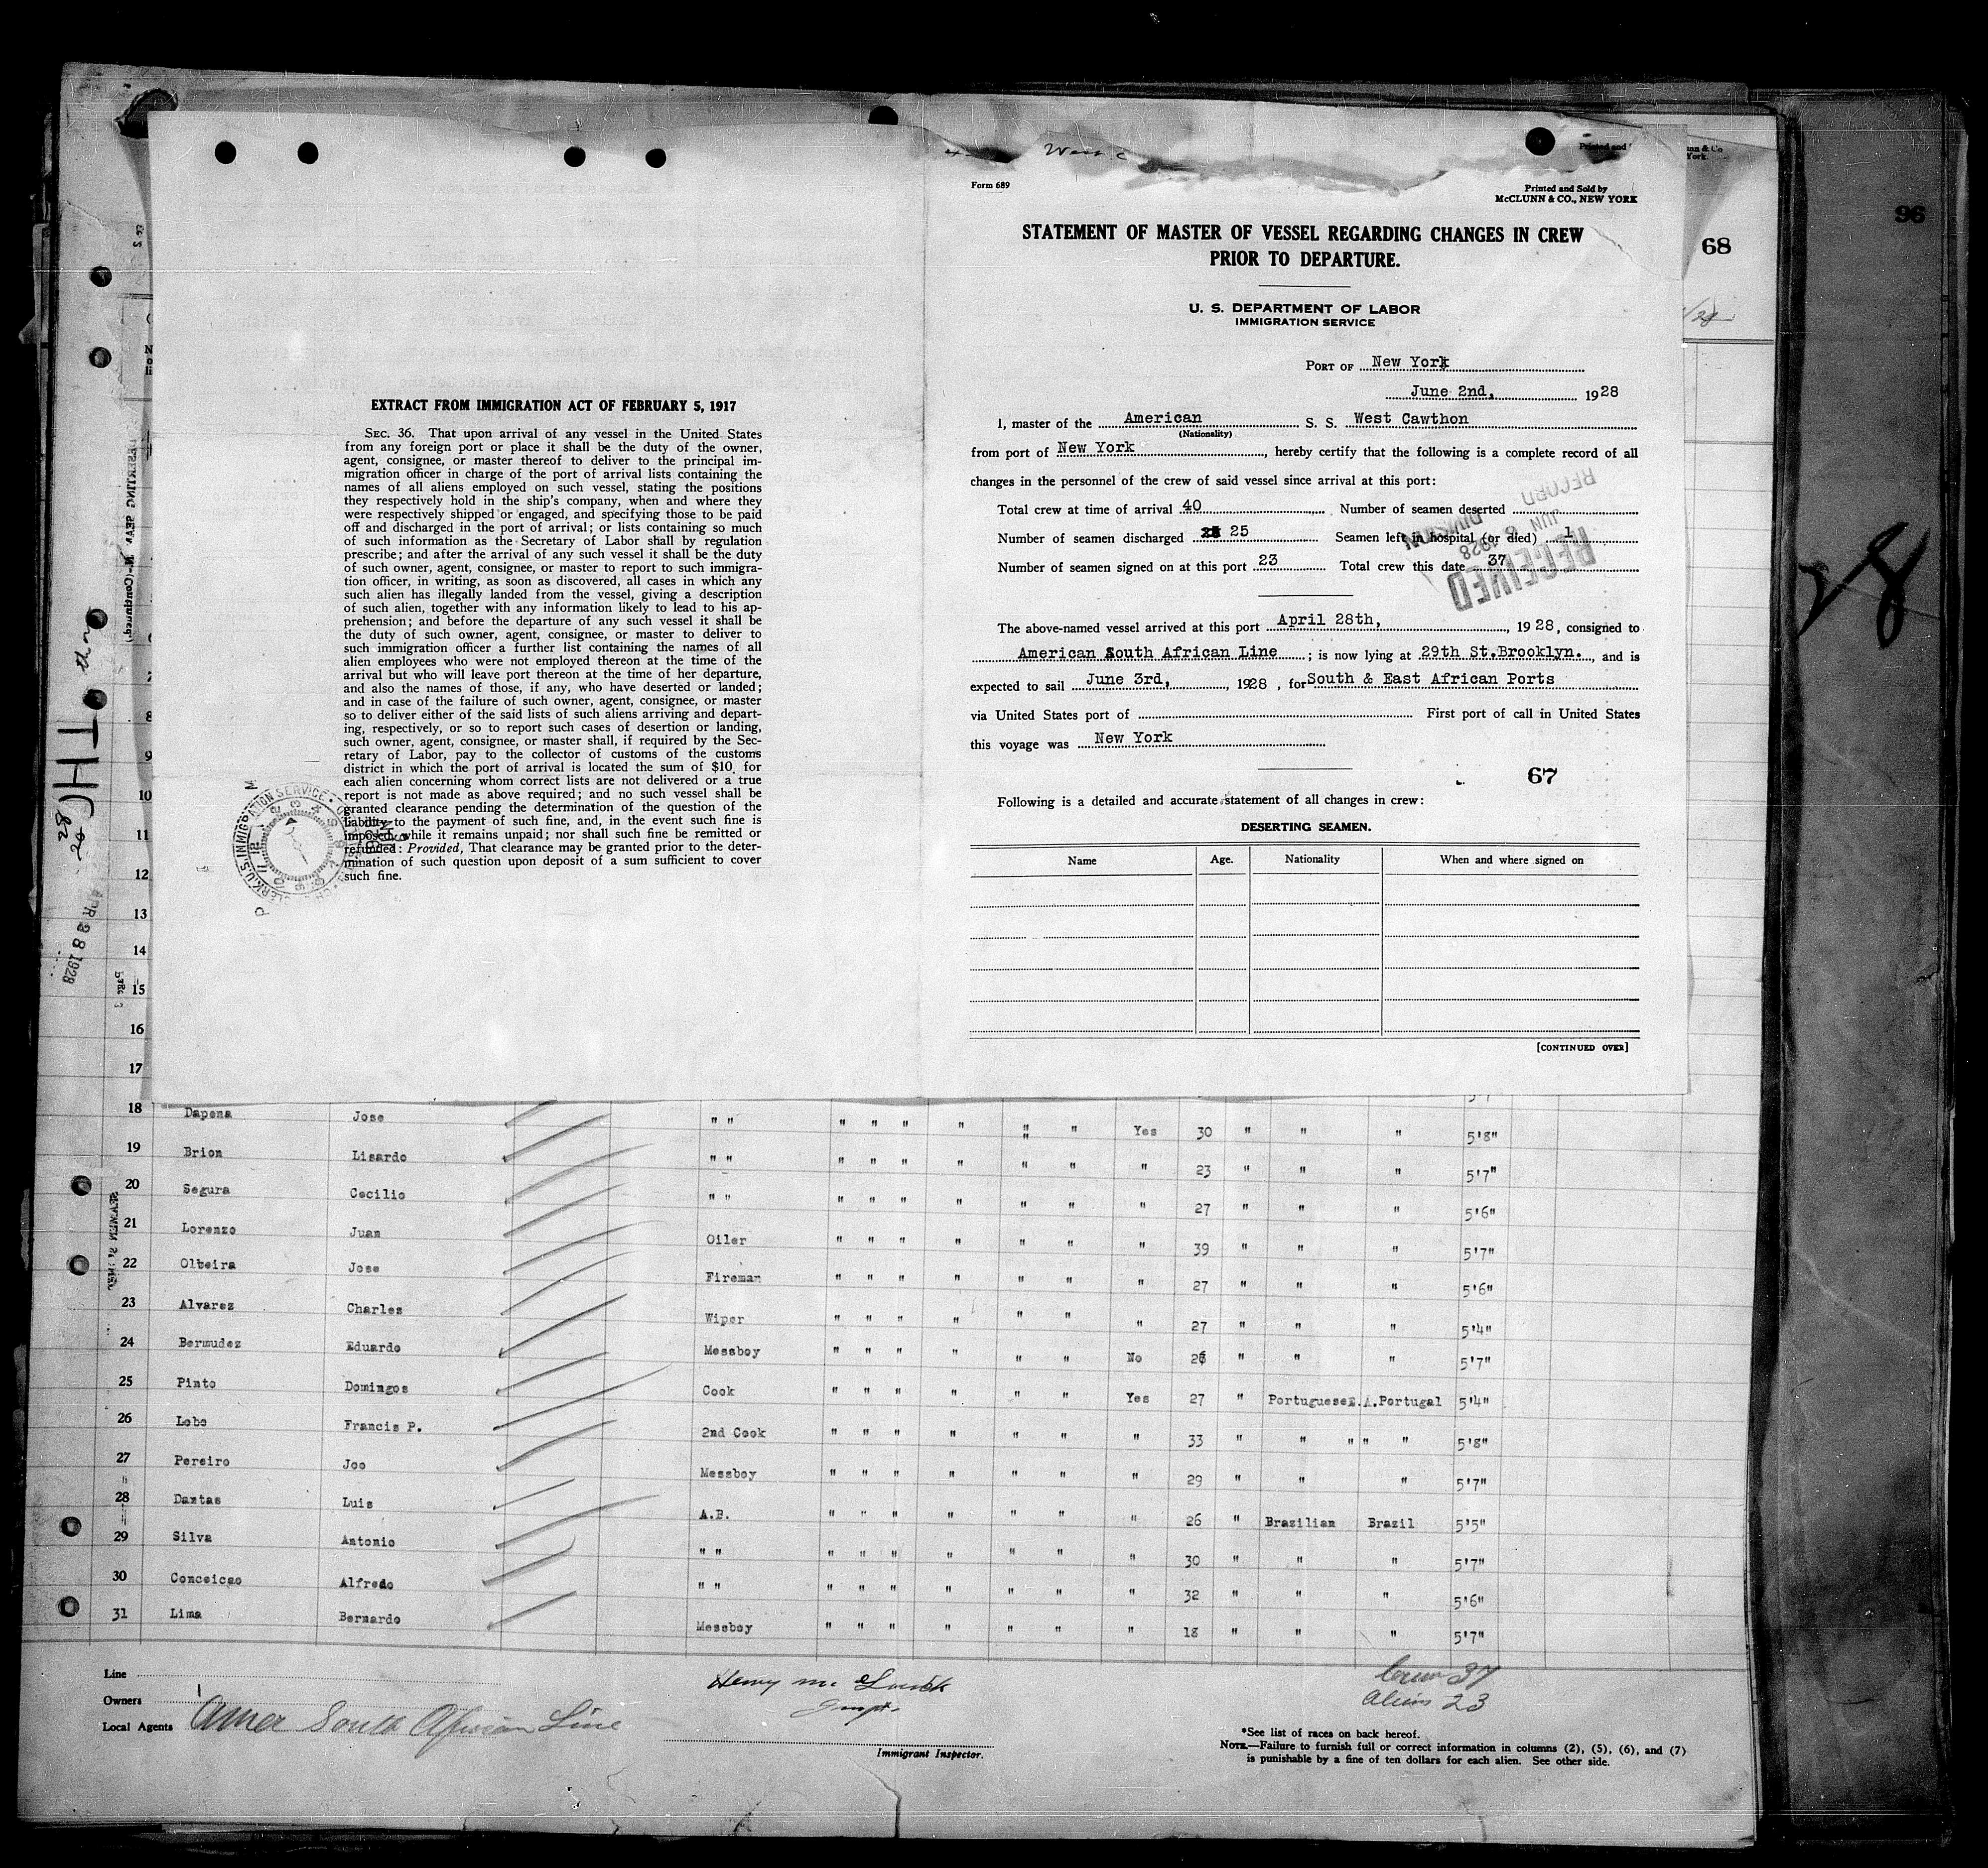 West C
Form 689
Printed and Sold by
McCLUNN & CO., NEW YORK
STATEMENT OF MASTER OF VESSEL REGARDING CHANGES IN CREW
PRIOR TO DEPARTURE.
U. S. DEPARTMENT OF LABOR
IMMIGRATION SERVICE
PORT OF New York
June 2nd, 1928
I, master of the American S. S. West Cawthon
(Nationality)
from port of New York, hereby certify that the following is a complete record of all
changes in the personnel of the crew of said vessel since arrival at this port:
Total crew at time of arrival 40 Number of seamen deserted
Number of seamen discharged 25 Seamen left in hospital (or died) 1
Number of seamen signed on at this port 23 Total crew this date 37
RECEIVED
JUN 6 1928
RECORD DIVISION
The above-named vessel arrived at this port April 28th, 1928, consigned to
American South African Line; is now lying at 29th St.Brooklyn., and is
expected to sail June 3rd, 1928, for South & East African Ports
via United States port of First port of call in United States
this voyage was New York
67
Following is a detailed and accurate statement of all changes in crew:
DESERTING SEAMEN.
Name Age. Nationality When and where signed on
[CONTINUED OVER]
EXTRACT FROM IMMIGRATION ACT OF FEBRUARY 5, 1917
SEC. 36. That upon arrival of any vessel in the United States
from any foreign port or place it shall be the duty of the owner,
agent, consignee, or master thereof to deliver to the principal im-
migration officer in charge of the port of arrival lists containing the
names of all aliens employed on such vessel, stating the positions
they respectively hold in the ship's company, when and where they
were respectively shipped or engaged, and specifying those to be paid
off and discharged in the port of arrival; or lists containing so much
of such information as the Secretary of Labor shall by regulation
prescribe; and after the arrival of any such vessel it shall be the duty
of such owner, agent, consignee, or master to report to such immigra-
tion officer, in writing, as soon as discovered, all cases in which any
such alien has illegally landed from the vessel, giving a description
of such alien, together with any information likely to lead to his ap-
prehension; and before the departure of any such vessel it shall be
the duty of such owner, agent, consignee, or master to deliver to
such immigration officer a further list containing the names of all
alien employees who were not employed thereon at the time of the
arrival but who will leave port thereon at the time of her departure,
and also the names of those, if any, who have deserted or landed;
and in case of the failure of such owner, agent, consignee, or master
so to deliver either of the said lists of such aliens arriving and depart-
ing, respectively, or so to report such cases of desertion or landing,
such owner, agent, consignee, or master shall, if required by the Sec-
retary of Labor, pay to the collector of customs of the customs
district in which the port of arrival is located the sum of $10 for
each alien concerning whom correct lists are not delivered or a true
report is not made as above required; and no such vessel shall be
granted clearance pending the determination of the question of the
liability to the payment of such fine, and, in the event such fine is
imposed, while it remains unpaid; nor shall such fine be remitted or
refunded: Provided, That clearance may be granted prior to the deter-
mination of such question upon deposit of a sum sufficient to cover
such fine.
68
96
28
APR 28 1928
8
9
10
11
12
13
14
15
16
17
18 Dapena Jose " " " " " " " " Yes 30 " " " 5'8"
19 Brion Lisardo " " " " " " " " " 23 " " " 5'7"
20 Segura Cecilio " " " " " " " " " 27 " " " 5'6"
21 Lorenzo Juan Oiler " " " " " " " 39 " " " 5'7"
22 Olbeira Jose Fireman " " " " " " " 27 " " " 5'6"
23 Alvarez Charles Wiper " " " " " " " 27 " " " 5'4"
24 Bermudez Eduardo Messboy " " " " " " No 26 " " " 5'7"
25 Pinto Domingos Cook " " " " " " Yes 27 " Portuguese E.A.Portugal 5'4"
26 Lobo Francis P. 2nd Cook " " " " " " " 33 " " " " " 5'8"
27 Pereiro Joo Messboy " " " " " " " 29 " " " 5'7"
28 Dantas Luis A.B. " " " " " " " 26 " Brazilian Brazil 5'5"
29 Silva Antonio " " " " " " " " " 30 " " " 5'7"
30 Conceicao Alfredo " " " " " " " " " 32 " " " 5'6"
31 Lima Bernardo Messboy " " " " " " " 18 " " " 5'7"
Line
Owners
Local Agents Amer South African Line
Immigrant Inspector.
Crew 37
Aliens 23
*See list of races on back hereof.
NOTE.—Failure to furnish full or correct information in columns (2), (5), (6), and (7)
is punishable by a fine of ten dollars for each alien. See other side.